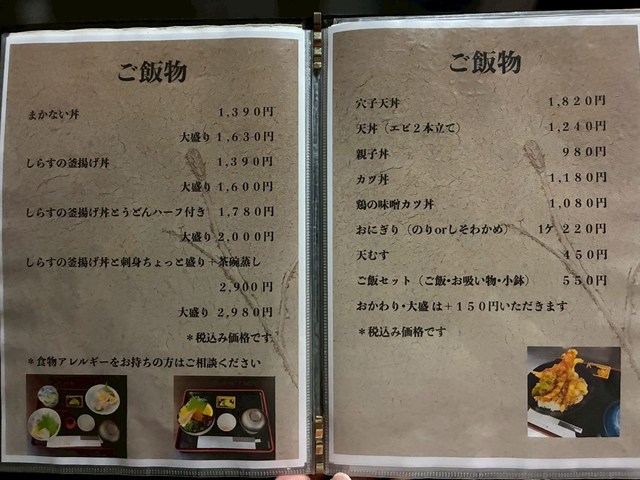 ご飯物
まかない丼 1,390円
大盛り 1,630円
しらすの釜揚げ丼 1,390円
大盛り 1,600円
しらすの釜揚げ丼とうどんハーフ付き 1,780円
大盛り 2,000円
しらすの釜揚げ丼と刺身ちょっと盛り＋茶碗蒸し
2,900円
大盛り 2,980円
＊税込み価格です
＊食物アレルギーをお持ちの方はご相談ください
ご飯物
穴子天丼 1,820円
天丼（エビ２本立て） 1,240円
親子丼 980円
カツ丼 1,180円
鶏の味噌カツ丼 1,080円
おにぎり（のりorしそわかめ） 1ケ 220円
天むす 450円
ご飯セット（ご飯・お吸い物・小鉢） 550円
おかわり・大盛は＋１５０円いただきます
＊税込み価格です